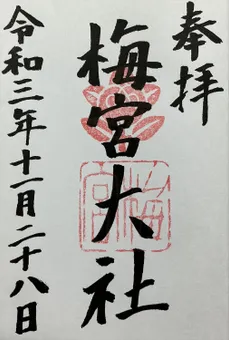 奉拝
梅宮大社
梅宮
令和三年十一月二十八日